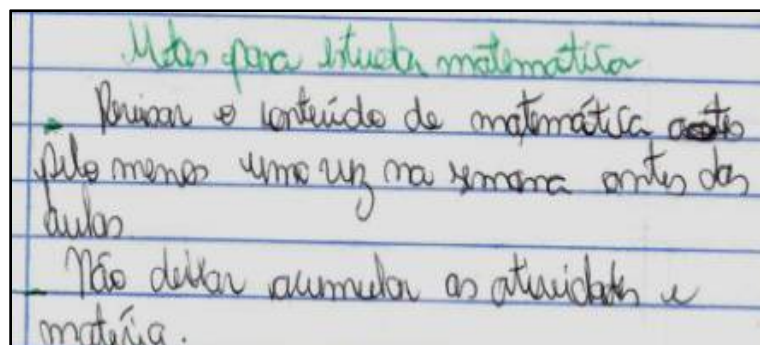 Metas para estudar matemática
- Revisar o conteúdo de matemática
pelo menos uma vez na semana antes das
aulas
- Não deixar acumular as atividades e
matéria.